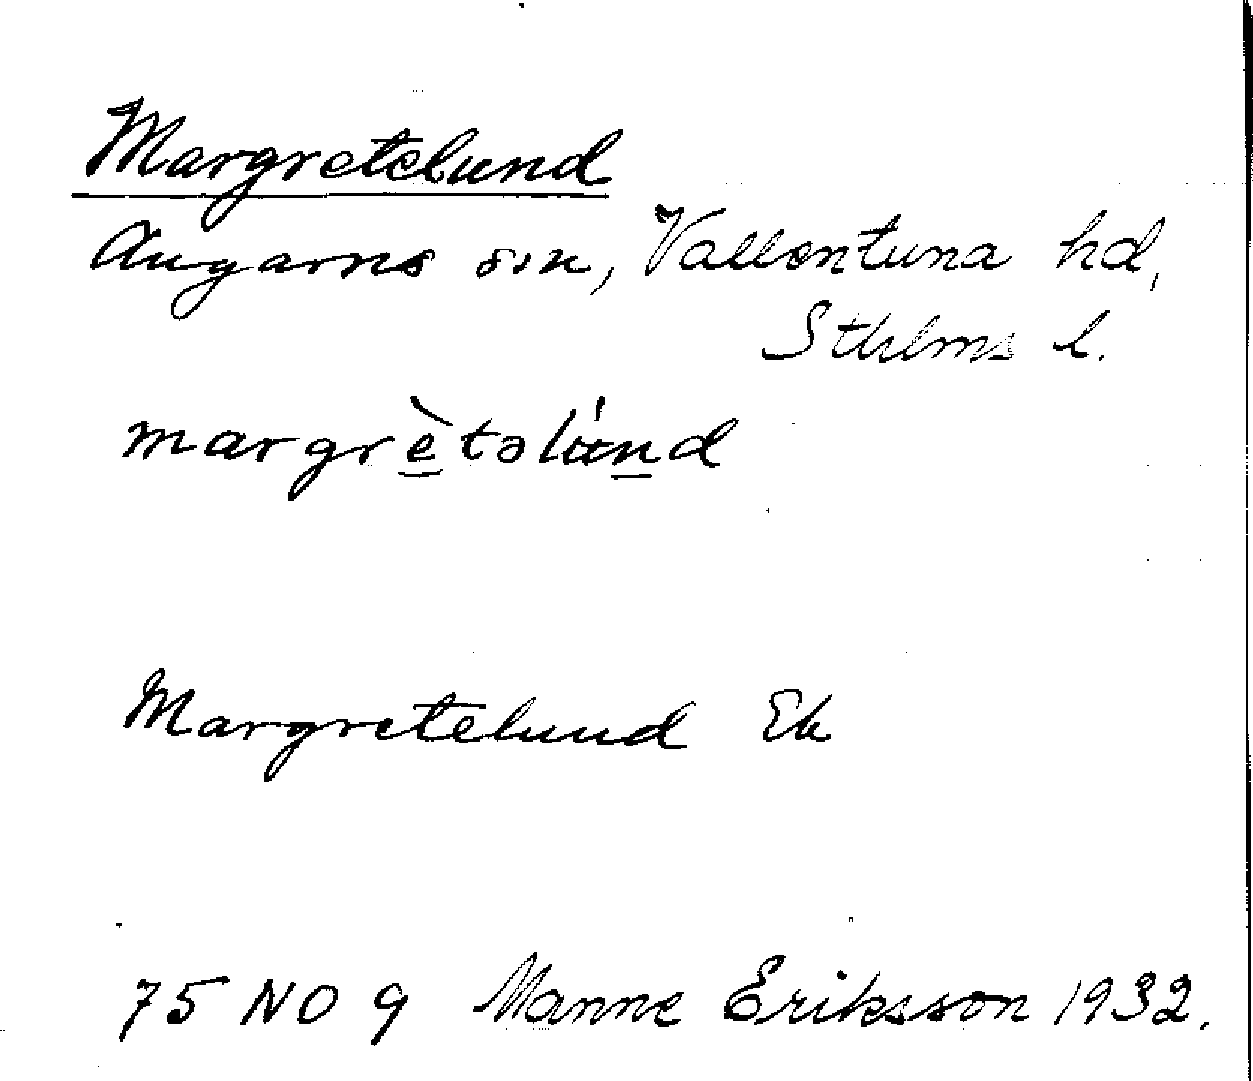 Margretelund
Angarns sn, Vallentuna hd,
Sthlms l.
margrètəlúnd
Margretelund Ek
75 NO 9 Manne Eriksson 1932.